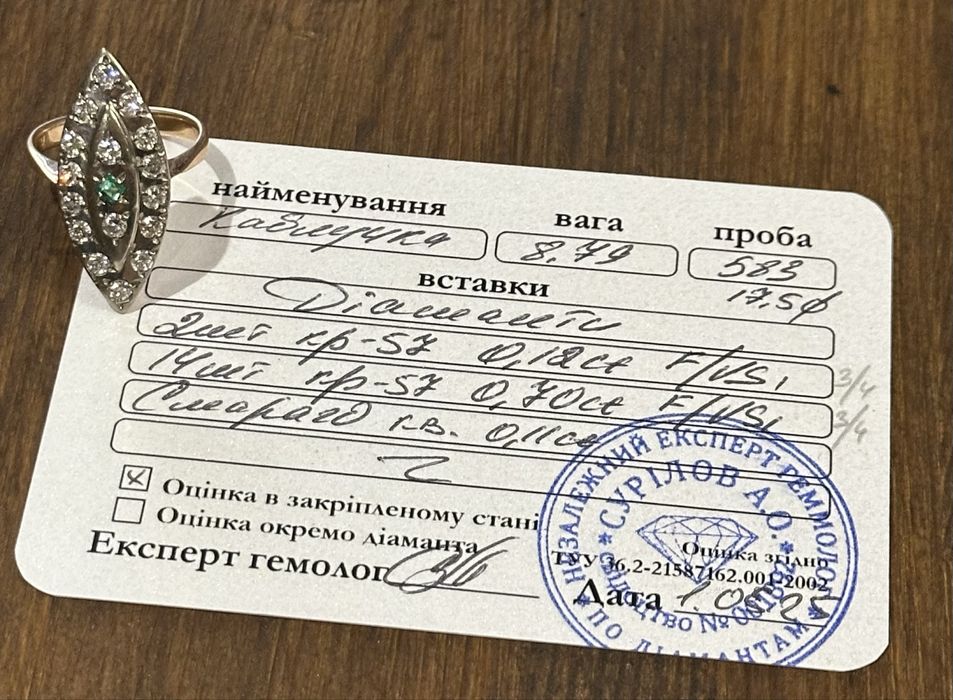 найменування вага проба
Каблучка 8.79 583
17.5ф
вставки
Діаманти
2шт кр-57 0,12ct F/VS1 3/4
14шт кр-57 0,70ct F/VS1 3/4
Смарагд кв. 0,11ct
Z
Оцінка в закріпленому стані
Оцінка окремо діаманта
Експерт гемолог
НЕЗАЛЕЖНИЙ ЕКСПЕРТ ГЕММОЛОГ
* СУРІЛОВ А.О. *
Оцінка згідно
ТУУ 36.2-21587162.001-2002
Дата
СВІДОЦТВО №
* ПО ДІАМАНТАМ *